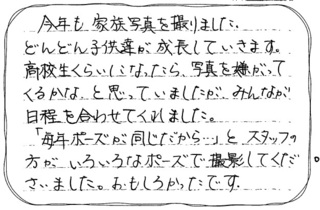 今年も家族写真を撮りました。
どんどん子供達が成長していきます。
高校生くらいになったら、写真を嫌がって
くるかな、と思っていましたが、みんなが
日程を合わせてくれました。
「毎年ポーズが同じだから…」と スタッフの
方が いろいろなポーズで撮影してくだ
さいました。おもしろかったです。